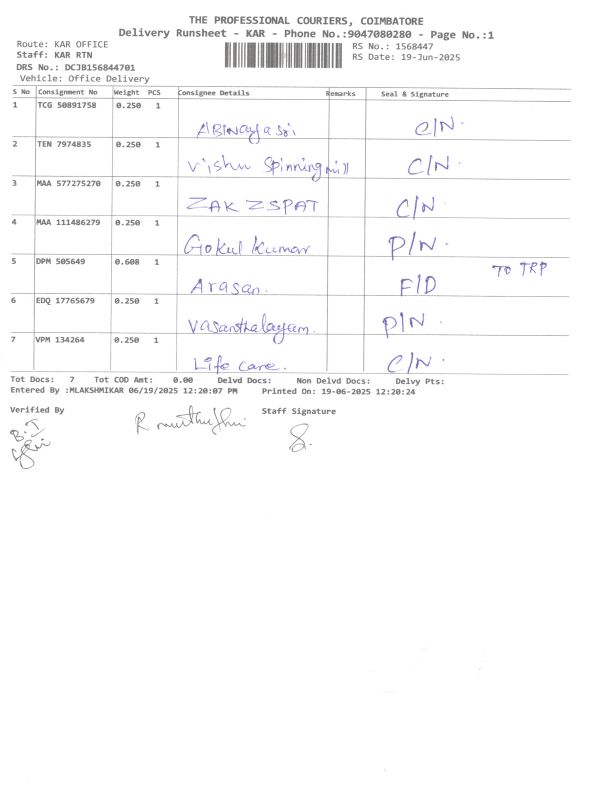 THE PROFESSIONAL COURIERS, COIMBATORE
Delivery Runsheet - KAR - Phone No.:9047080280 - Page No.:1
Route: KAR OFFICE RS No.: 1568447
Staff: KAR RTN RS Date: 19-Jun-2025
DRS No.: DCJB156844701
Vehicle: Office Delivery
S No Consignment No Weight PCS Consignee Details Remarks Seal & Signature
1 TCG 50891758 0.250 1
Abinayasri C/N.
2 TEN 7974835 0.250 1
Vishnu Spinning mill C/N.
3 MAA 577275270 0.250 1
ZAK ZSPAT C/N.
4 MAA 111486279 0.250 1
Gokul Kumar P/N.
5 DPM 505649 0.608 1 TO TRP
Arasan. F/D
6 EDQ 17765679 0.250 1
P/N.
7 VPM 134264 0.250 1
Life care. C/N.
Tot Docs: 7 Tot COD Amt: 0.00 Delvd Docs: Non Delvd Docs: Delvy Pts:
Entered By :MLAKSHMIKAR 06/19/2025 12:20:07 PM Printed On: 19-06-2025 12:20:24
Verified By Staff Signature